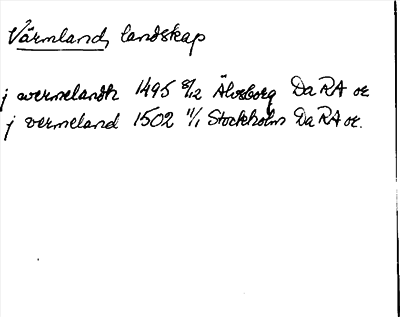 Värmland, landskap
j wermelandh 1495 8/12 Älvsborg Da RA or
j vermeland 1502 11/1 Stockholm Da RA or.